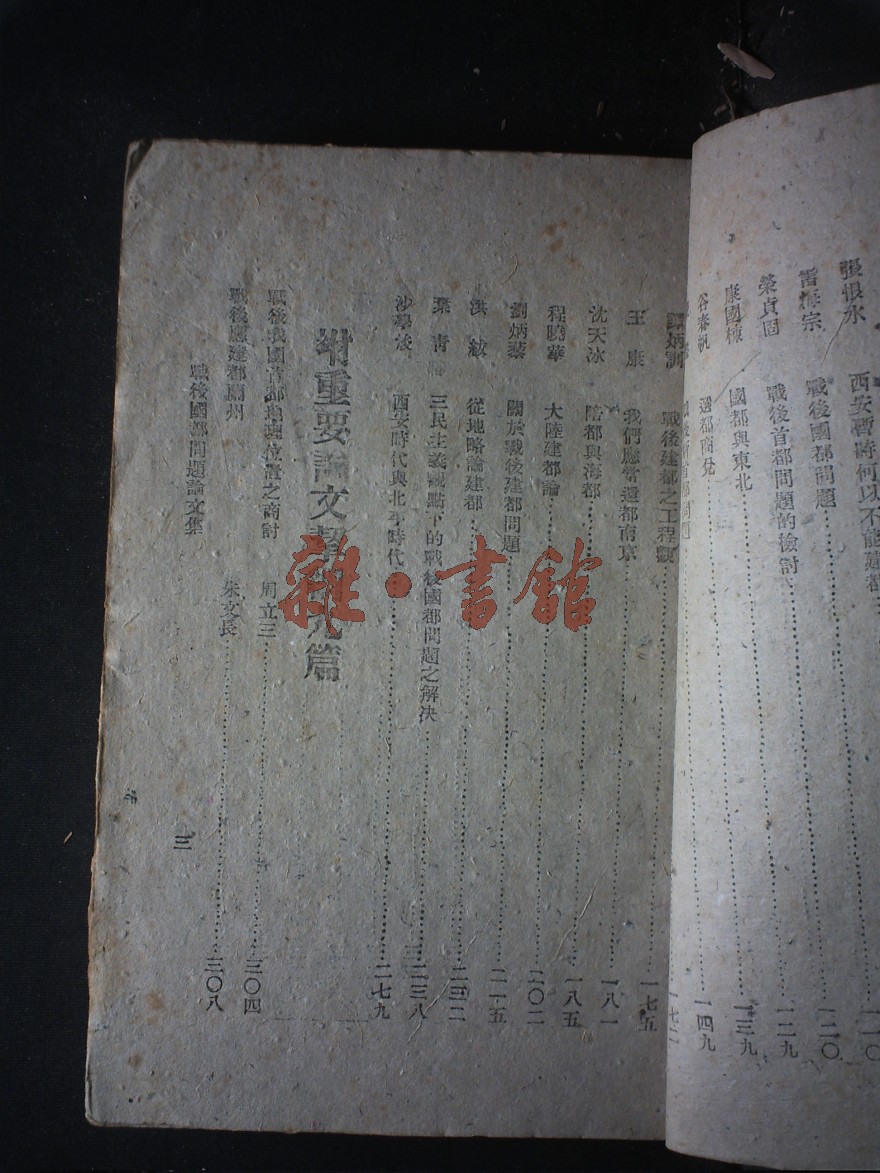 張恨水 西安暫時何以不能建都 一一〇
雷海宗 戰後國都問題 一二〇
榮貞固 戰後首都問題的檢討 一二九
康國棟 國都與東北 一三九
谷春帆 選都商兌 一四九
譚炳訓 戰後建都之工程觀 一七五
王康 我們應當還都南京 一八一
沈天冰 陪都與海都 一八五
程曉華 大陸建都論 二〇二
劉炳藜 關於戰後建都問題 二一五
洪紱 從地略論建都 二三二
葉青 三民主義觀點下的戰後國都問題之解決 二三八
沙學浚 西安時代與北平時代 二七九
附重要論文 篇
戰後我國首都地理位置之商討 周立三 三〇四
戰後應建都蘭州 朱文長 三〇八
戰後國都問題論文集
三
雜·書館